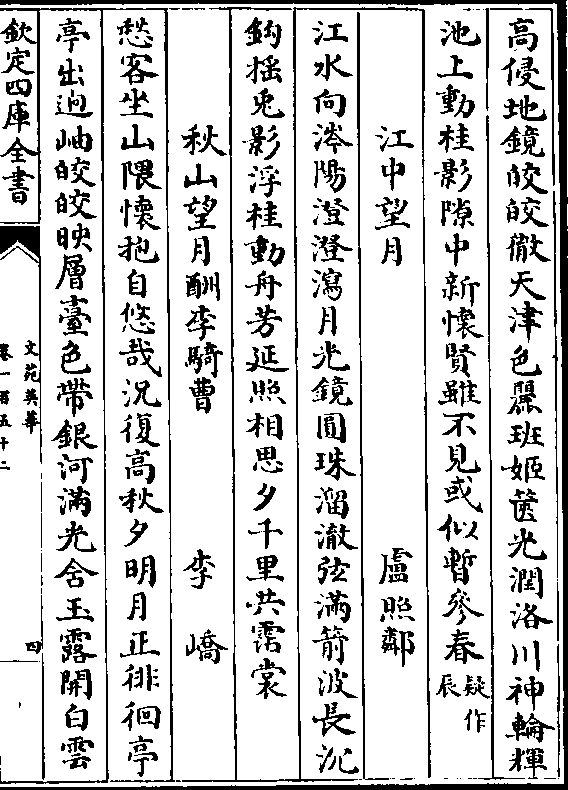 高侵地鏡皎皎徹天津色麗班姬篋光潤洛川神輪輝
池上動桂影隙中新懷賢雖不見或似暫參春疑作辰
江中望月 盧照鄰
江水向涔陽澄澄瀉月光鏡圓珠溜澈弦滿箭波長沉
鈎揺兎影浮桂動舟芳延照相思夕千里共霑裳
秋山望月酬李騎曹 李嶠
愁客坐山隈懷抱自悠哉况復高秋夕明月正徘徊亭
亭出迥岫皎皎映層臺色帶銀河滿光含玉露開白雲
欽定四庫全書
文苑英華
卷一百五十二
四